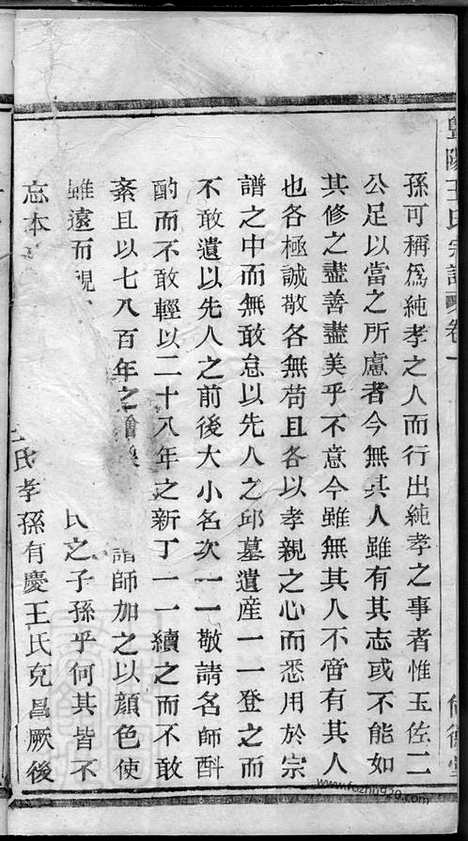 暨陽王氏宗譜 卷一
孫可稱爲純孝之人而行出純孝之事者惟玉佐二
公足以當之所慮者今無其人雖有其志或不能如
其修之盡善盡美乎不意今雖無其人不啻有其人
也各極誠敬各無苟且各以孝親之心而悉用於宗
譜之中而無敢怠以先人之邱墓遺産一一登之而
不敢遺以先人之前後大小名次一一敬請名師斟
酌而不敢輕以二十八年之新丁一一續之而不敢
紊且以七八百年之 諸師加之以顔色使
雖遠而視 氏之子孫乎何其皆不
忘本 王氏孝孫有慶王氏克昌厥後
www.fozhu920.com